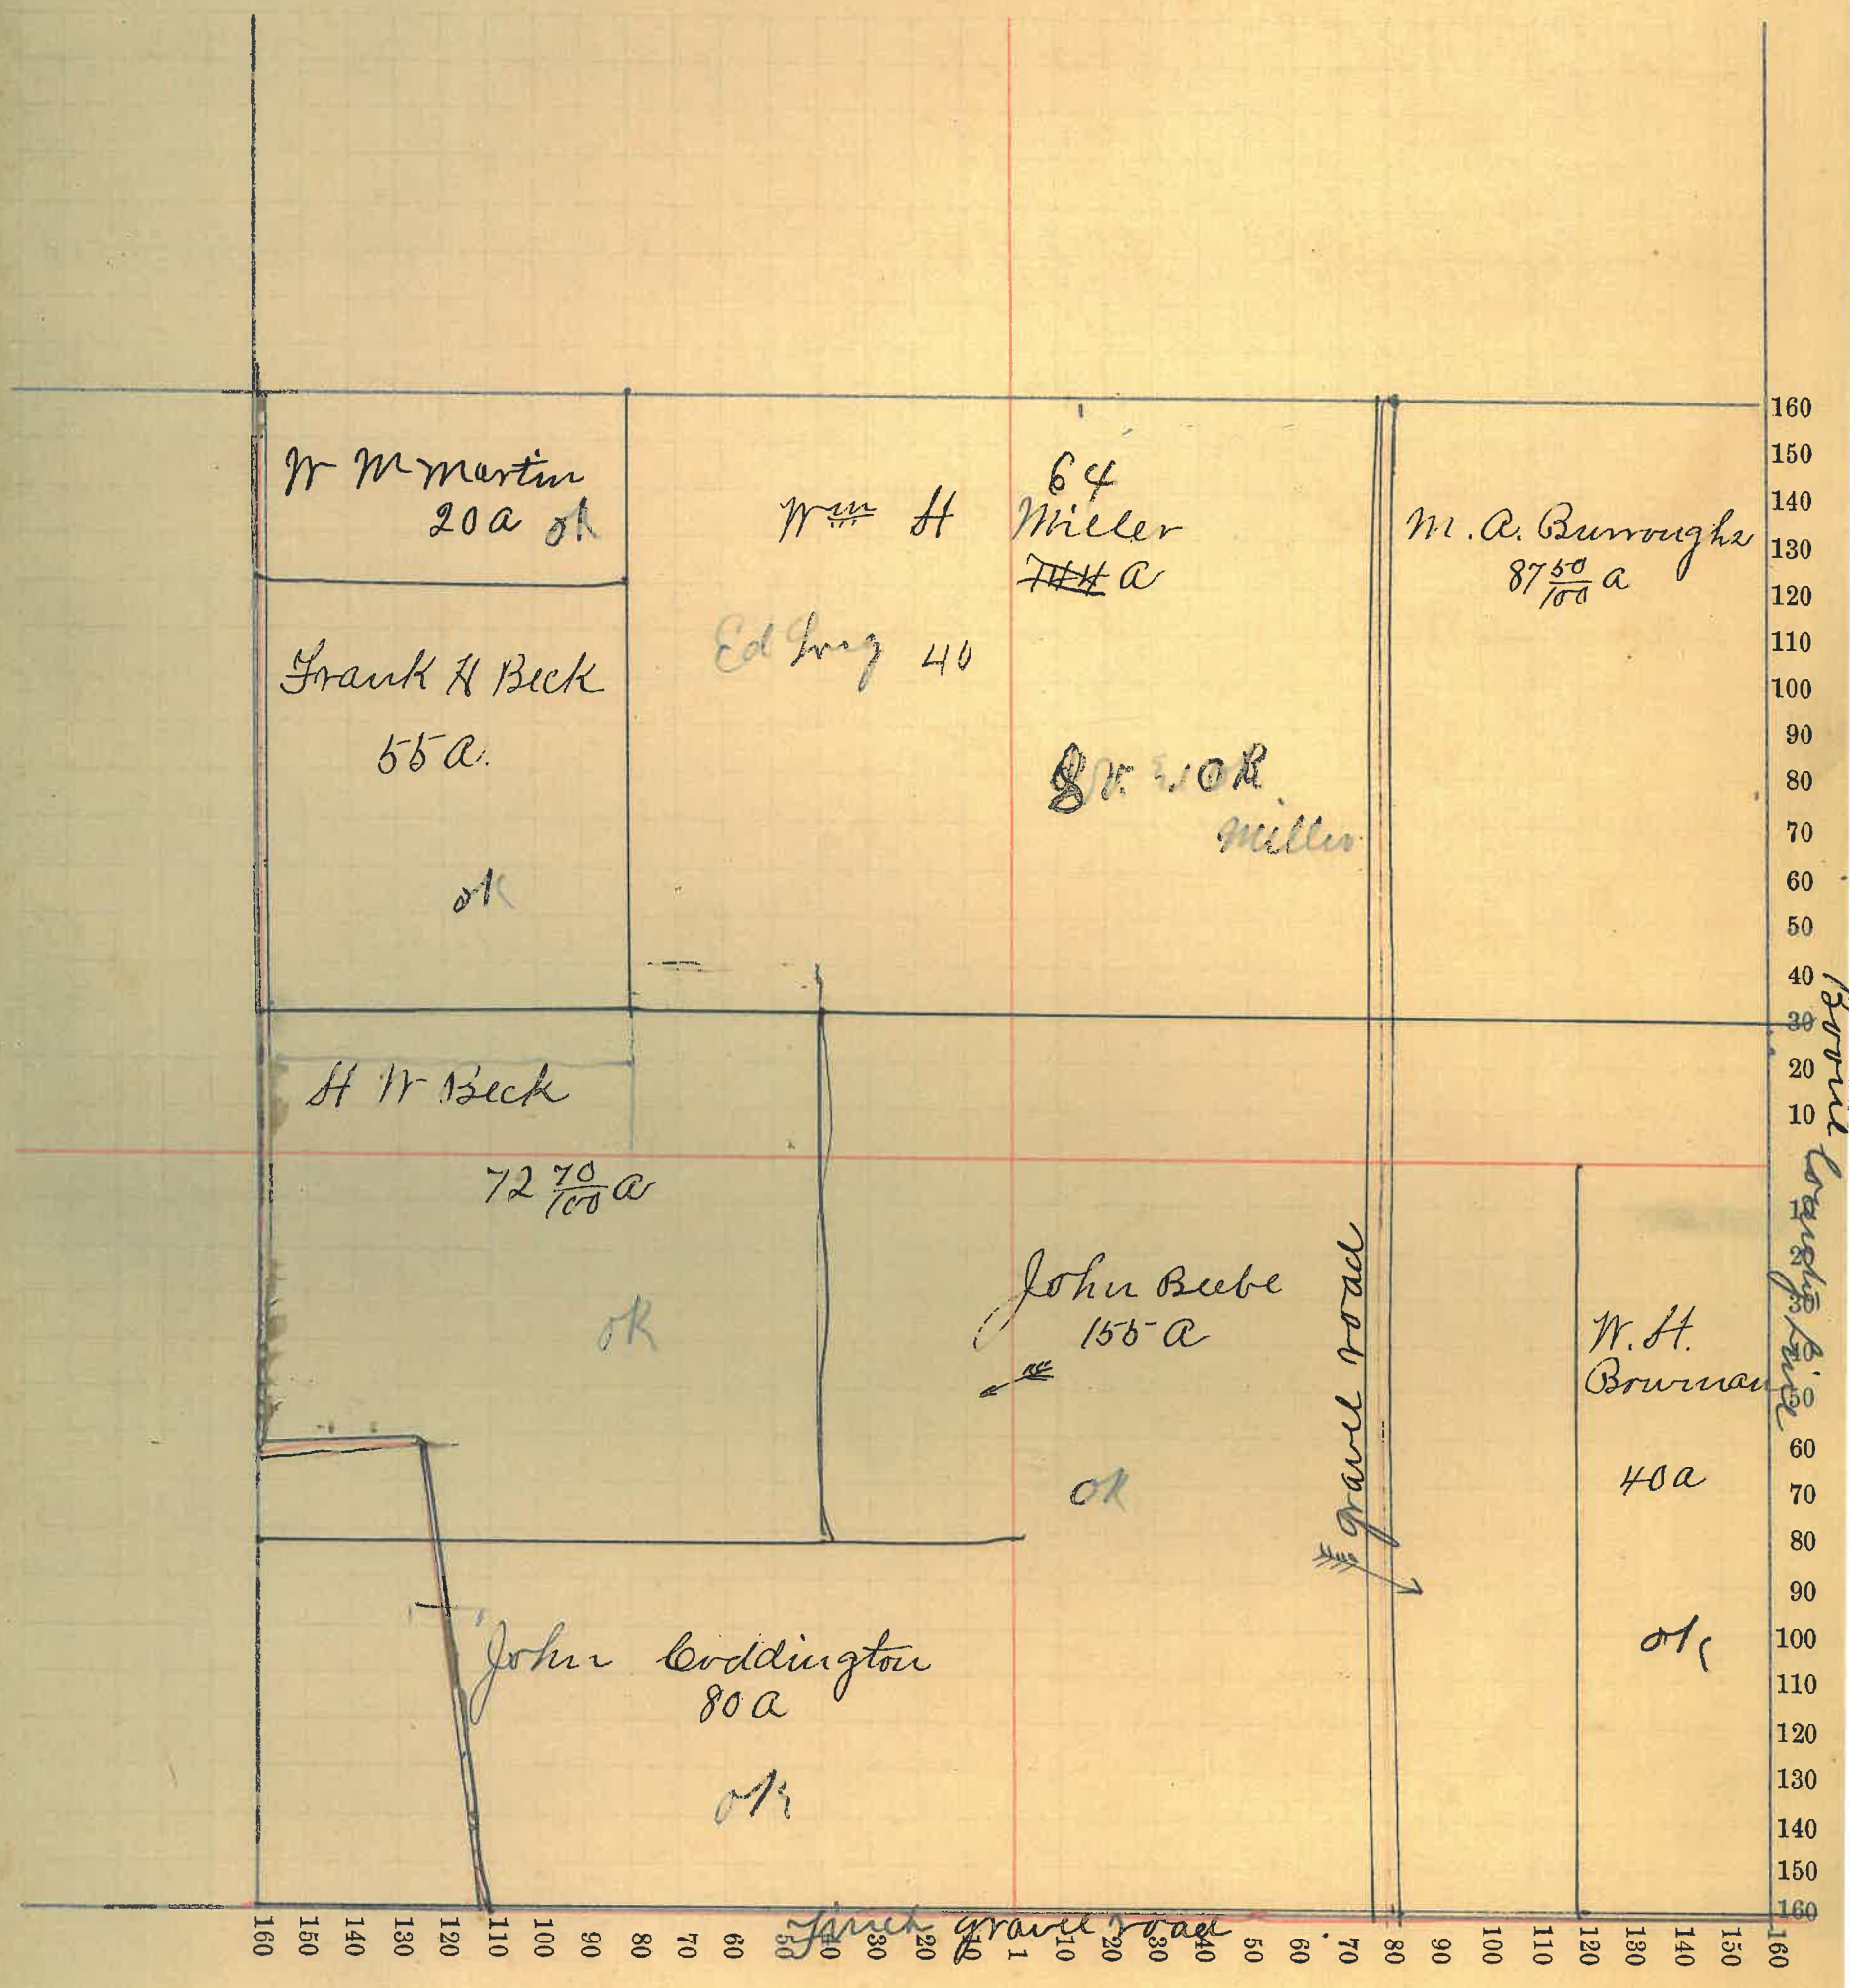 W M Martin
20 a ok
Frank H Beck
55 a.
ok
Wm H Miller
64
744 a
40
OK
Miller
M. A. Burroughs
87 50/100 a
H W Beck
72 70/100 a
OK
John Beebe
155 a
OK
gravel road
W. H.
Bowman
40 a
ok
John Coddington
80 a
ok
gravel road
Township Line
160
150
140
130
120
110
100
90
80
70
60
50
40
30
20
10
10
50
60
70
80
90
100
110
120
130
140
150
160
160 150 140 130 120 110 100 90 80 70 60 50 40 30 20 10 1 10 20 30 40 50 60 70 80 90 100 110 120 130 140 150 160